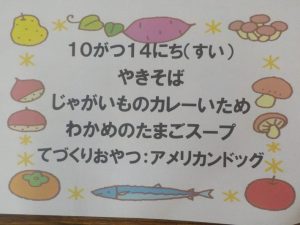 10がつ14にち(すい)
やきそば
じゃがいものカレーいため
わかめのたまごスープ
てづくりおやつ:アメリカンドッグ